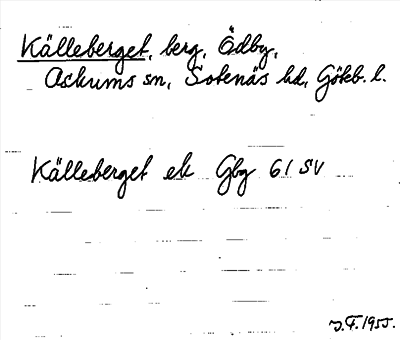 Källeberget, berg, Ödby,
Askums sn, Sotenäs hd, Göteb. l.
Källeberget ek Gbg 61 SV
J.F. 1955.